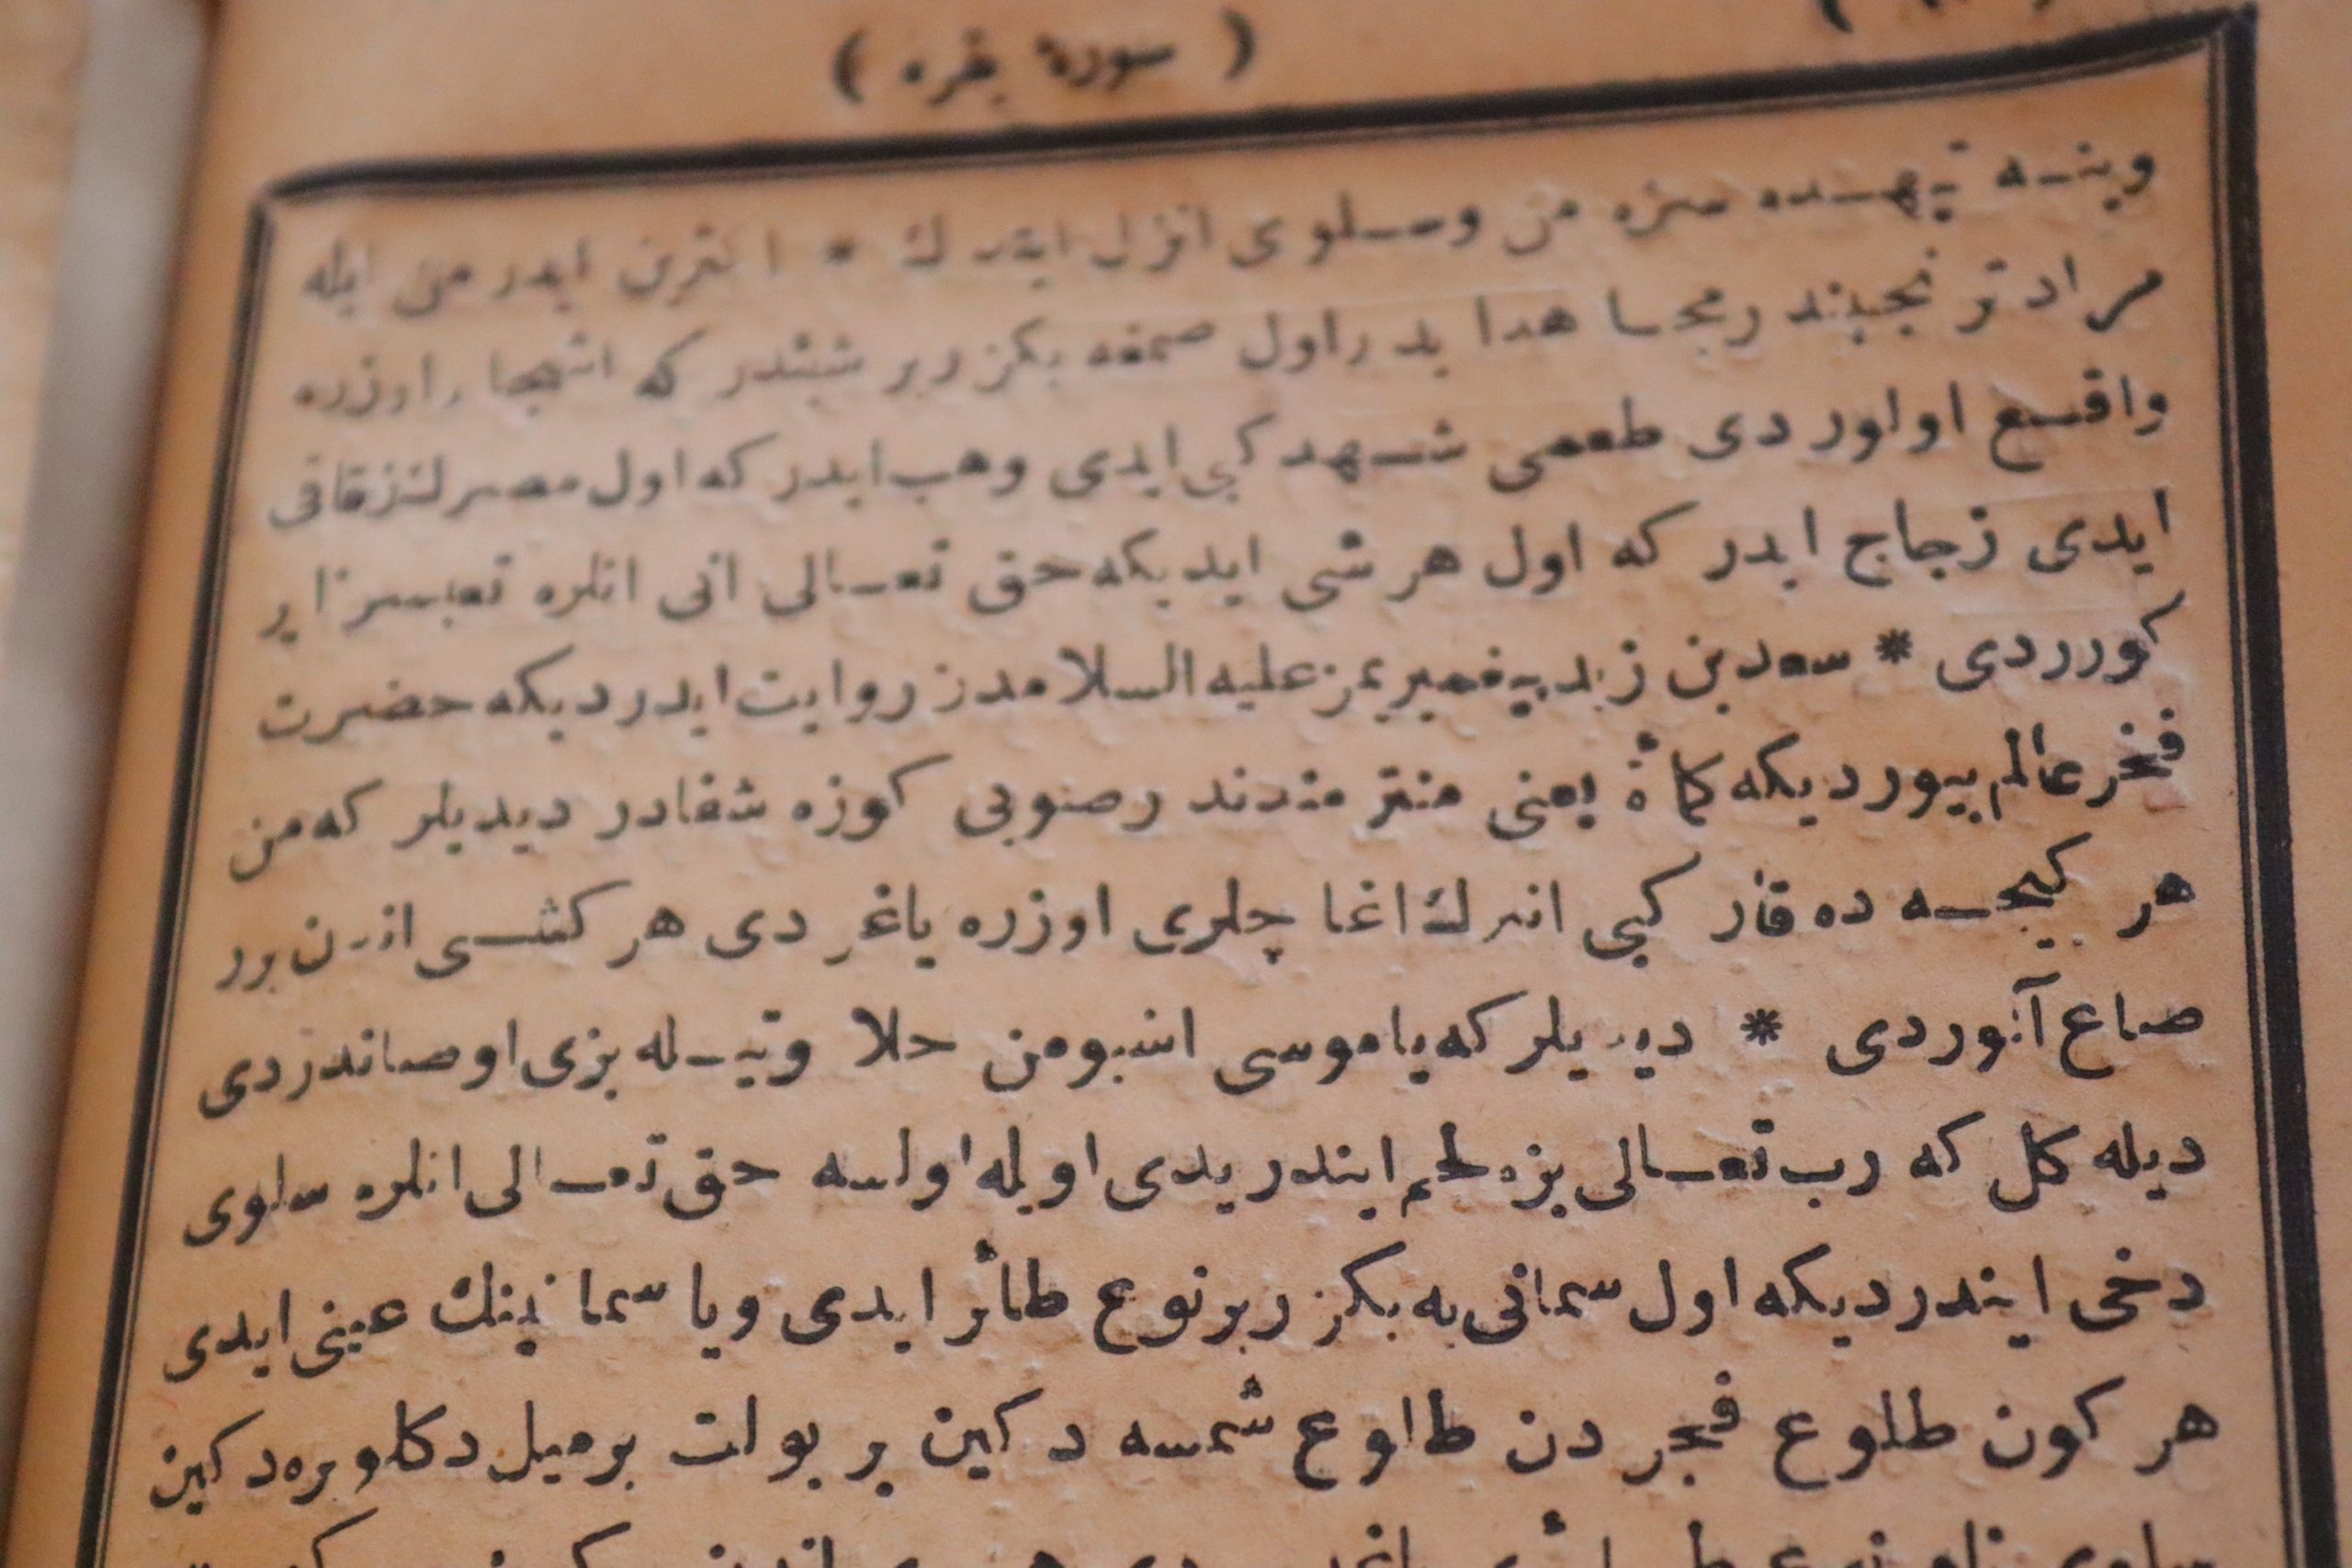 ( سورۀ بقره )
وينه تيهده سزه من وسلوى انزل ايتدك * اكثرين ايدر من ايله
مراد ترنجبيندر مجاهد ايدر اول صمغه بكزر بر شيئدر كه اشجار اوزره
واقع اولوردى طعمى شهد كبى ايدى وهب ايدر كه اول مصرلنز قاقى
ايدى زجاج ايدر كه اول هر شى ايديكه حق تعالى انى انلره تعبسز اير
كورردى * سعد بن زيد پيغمبريمز عليه السلامدن روايت ايدر ديكه حضرت
فخر عالم بيورديكه كمأة يعنى منتر مندندر صويى كوزه شفادر ديديلر كه من
هر كيجه ده قار كبى انلرك اغاچلرى اوزره ياغردى هر كشى اندن برر
صاع آلوردى * ديديلر كه ياموسى اشبو من حلاوتيله بزى اوصاندردى
ديله كل كه رب تعالى بزه لحم ايندريدى اويله اولسه حق تعالى انلره سلوى
دخى ايندرديكه اول سمانى يه بكزر بر نوع طائر ايدى ويا سمانينك عينى ايدى
هر كون طلوع فجردن طلوع شمسه دكين بر بولت بر ميل دكلو يره دكين